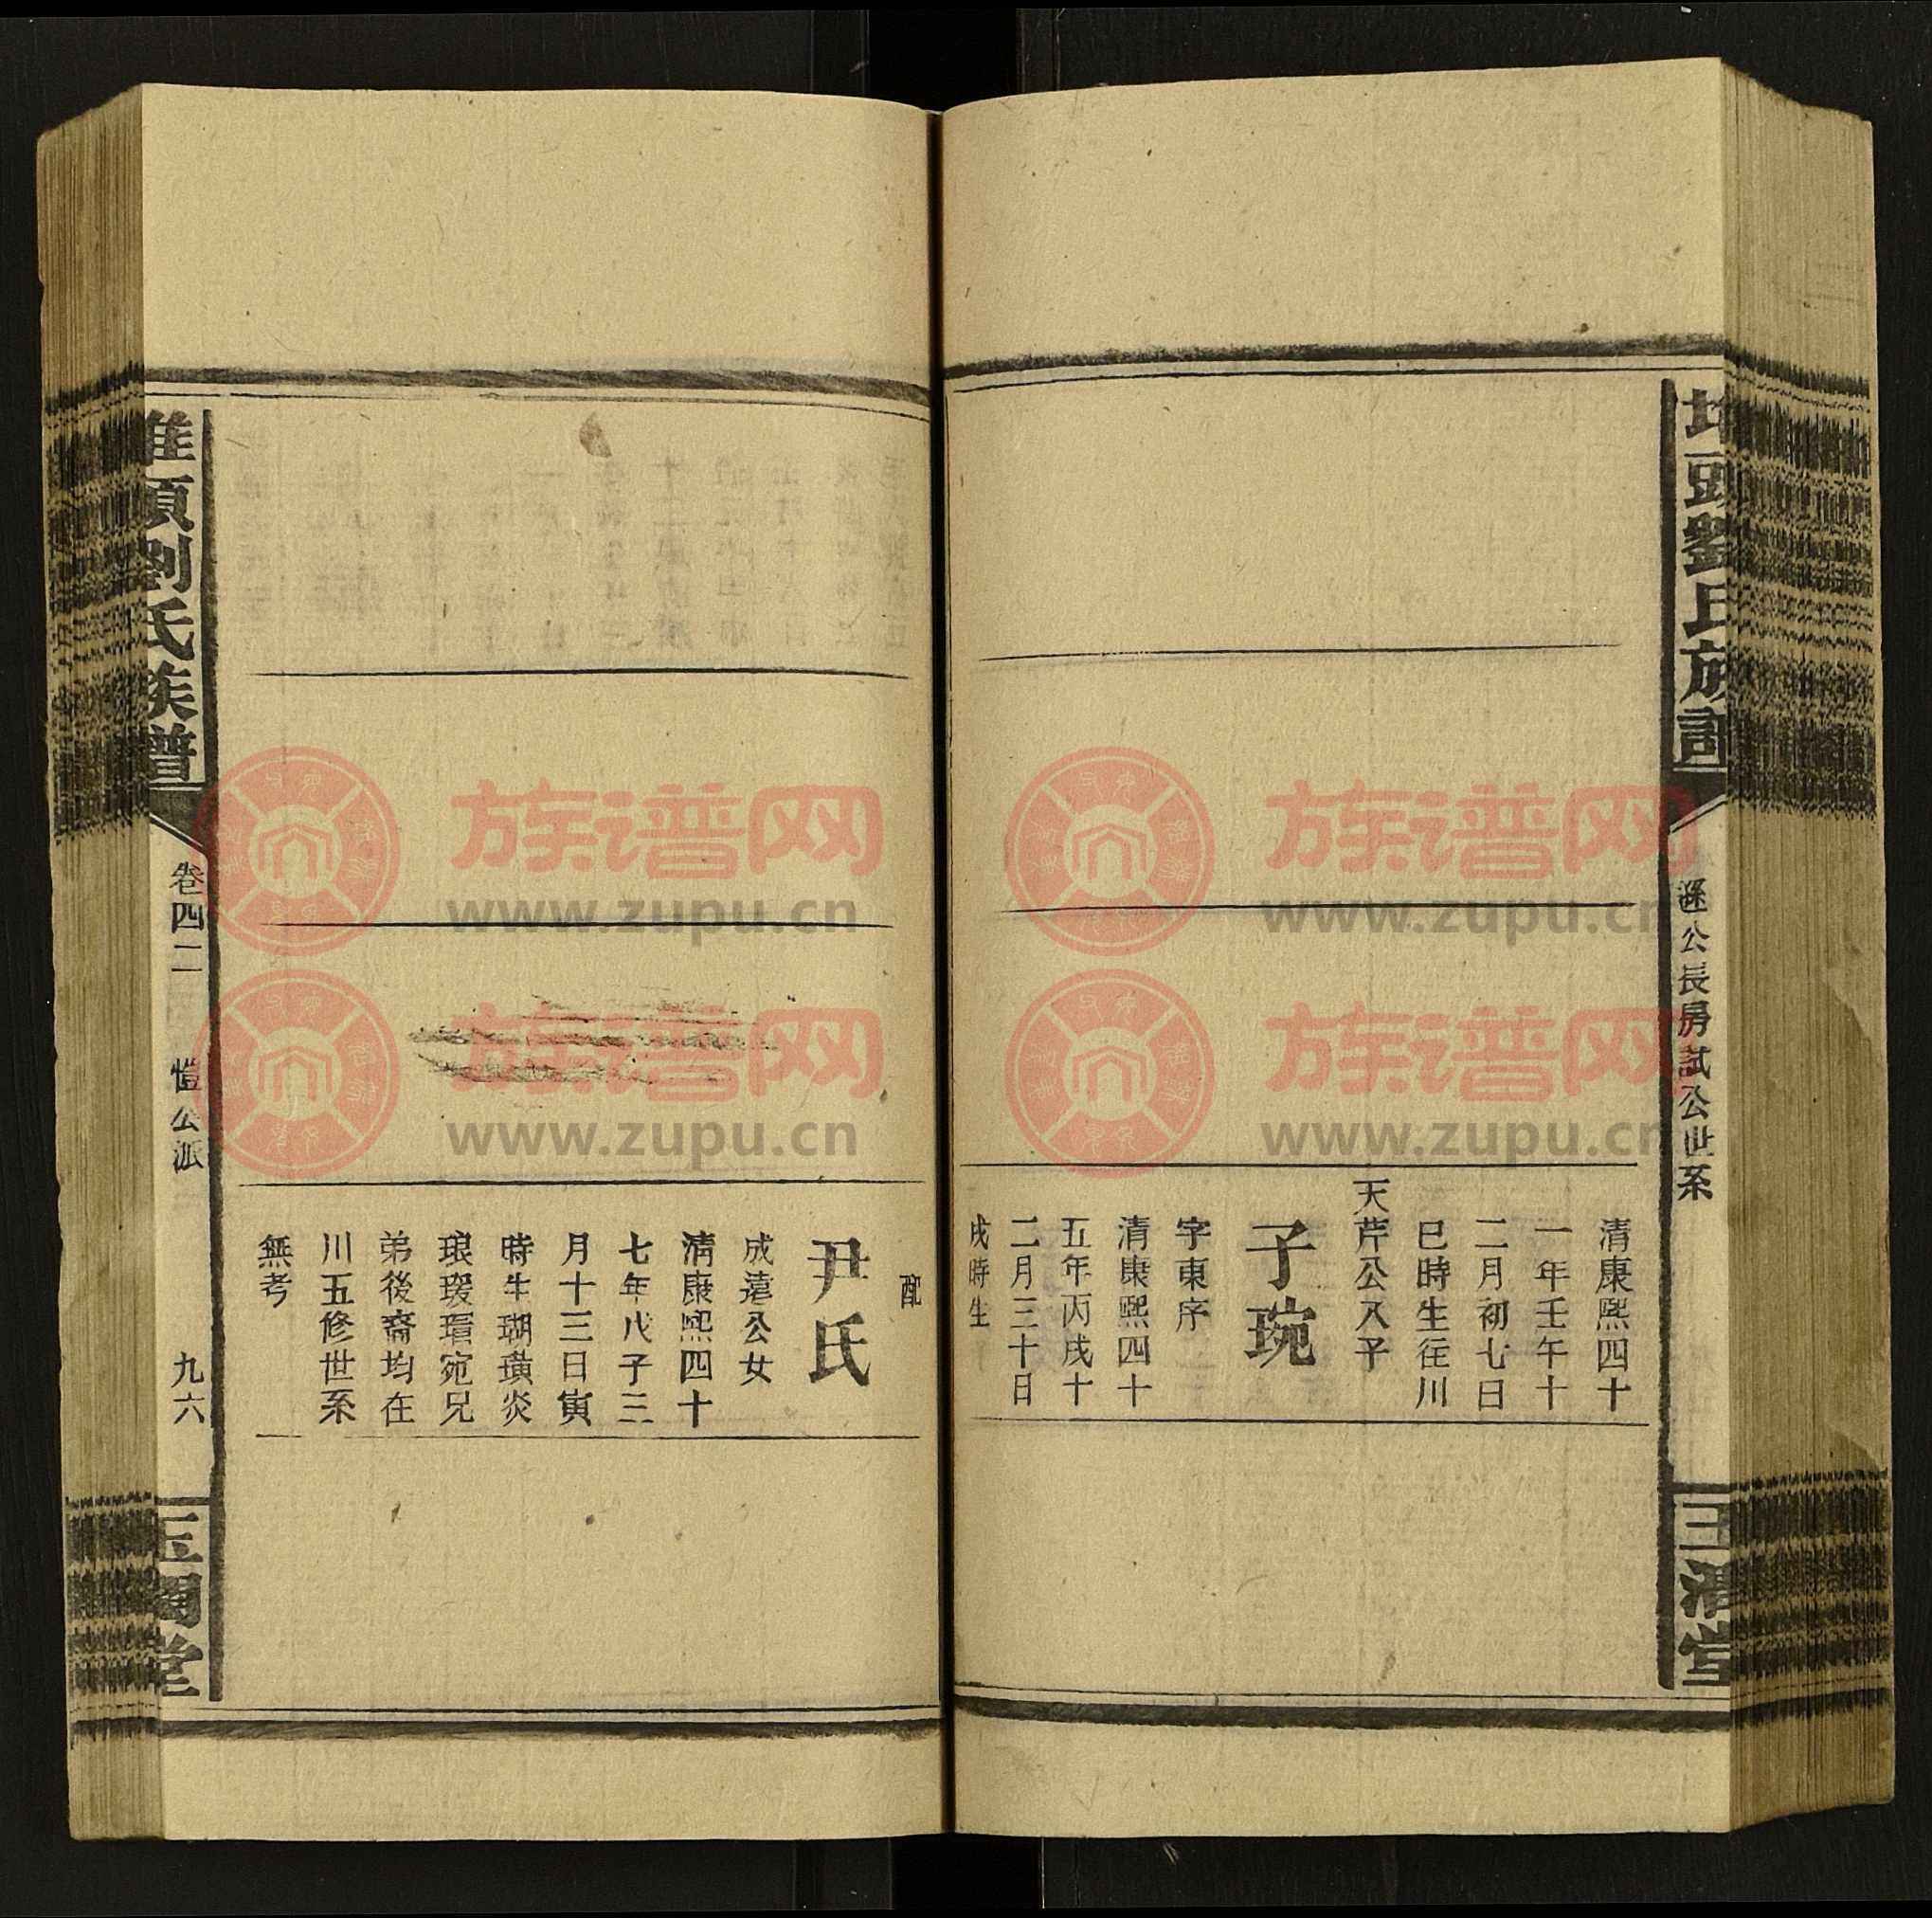 頭劉氏族譜
遜公長房試公世系
清康熙四十
一年壬午十
二月初七日
巳時生往川
天芹公入子
子琬
字東序
清康熙四十
五年丙戌十
二月三十日
戌時生
配
尹氏
成遠公女
清康熙四十
七年戊子三
月十三日寅
時生瑚璜炎
琅瑗瑨宛兄
弟後裔均在
川五修世系
無考
頭劉氏族譜
卷四二
愷公派
九六
堂
族谱网
www.zupu.cn
族谱网
www.zupu.cn
族谱网
www.zupu.cn
族谱网
www.zupu.cn